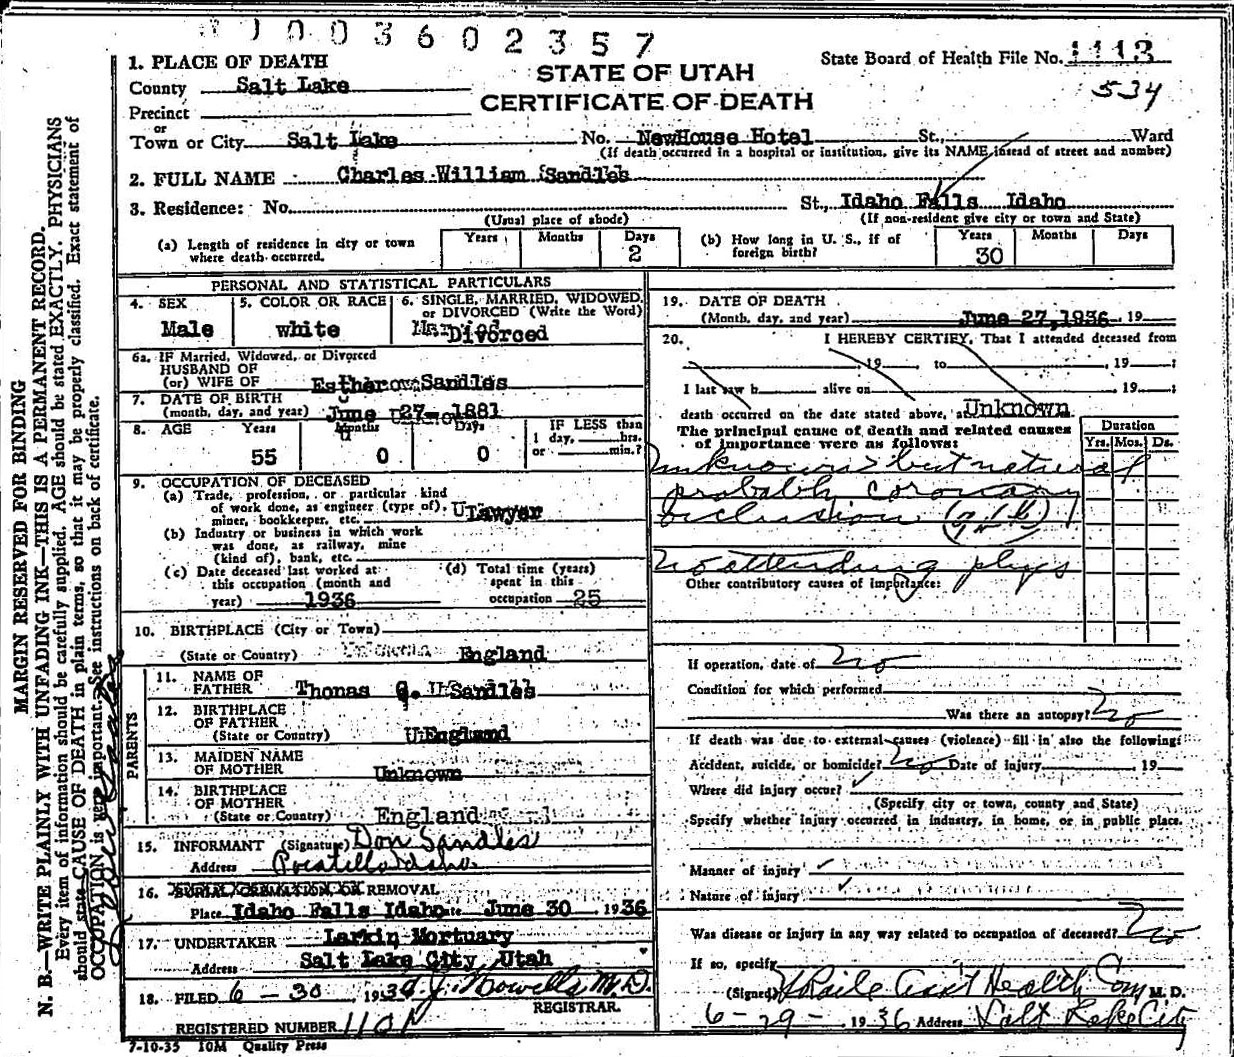 1003602357
STATE OF UTAH
CERTIFICATE OF DEATH
State Board of Health File No. 1113
534
1. PLACE OF DEATH
County Salt Lake
Precinct
or
Town or City Salt Lake No. NewHouse Hotel St., Ward
(If death occurred in a hospital or institution, give its NAME insead of street and number)
2. FULL NAME Charles William Sandles
3. Residence: No. St., Idaho Falls Idaho
(Usual place of abode) (If non-resident give city or town and State)
(a) Length of residence in city or town where death occurred. Years Months Days 2
(b) How long in U. S., if of foreign birth? Years 30 Months Days
PERSONAL AND STATISTICAL PARTICULARS
4. SEX Male
5. COLOR OR RACE white
6. SINGLE, MARRIED, WIDOWED, or DIVORCED (Write the Word) Divorced
6a. IF Married, Widowed, or Divorced
HUSBAND OF
(or) WIFE OF Esther Sandles
7. DATE OF BIRTH
(month, day, and year) June 27 1881
8. AGE Years 55 Months 0 Days 0 IF LESS than 1 day, hrs. or min.?
9. OCCUPATION OF DECEASED
(a) Trade, profession, or particular kind of work done, as engineer (type of), miner, bookkeeper, etc. Lawyer
(b) Industry or business in which work was done, as railway, mine (kind of), bank, etc.
(c) Date deceased last worked at this occupation (month and year) 1936
(d) Total time (years) spent in this occupation 25
10. BIRTHPLACE (City or Town)
(State or Country) England
PARENTS
11. NAME OF FATHER Thomas G. Sandles
12. BIRTHPLACE OF FATHER
(State or Country) England
13. MAIDEN NAME OF MOTHER Unknown
14. BIRTHPLACE OF MOTHER
(State or Country) England
15. INFORMANT (Signature) Don Sandles
Address Pocatello Idaho
16. BURIAL CREMATION OR REMOVAL
Place Idaho Falls Idaho Date June 30 1936
17. UNDERTAKER Larkin Mortuary
Address Salt Lake City Utah
18. FILED 6-30 1936 M.D.
REGISTRAR.
REGISTERED NUMBER
7-10-35 10M Quality Press
19. DATE OF DEATH
(Month, day, and year) June 27, 1936, 19
20. I HEREBY CERTIFY, That I attended deceased from
, 19 to , 19 ;
I last saw h alive on , 19 ;
death occurred on the date stated above, at Unknown
The principal cause of death and related causes of importance were as follows:
Duration
Yrs. Mos. Ds.
unknown but natural
probably coronary
occlusion
No attending phys
Other contributory causes of importance:
If operation, date of No
Condition for which performed
Was there an autopsy? No
If death was due to external causes (violence) fill in also the following:
Accident, suicide, or homicide? No Date of injury 19
Where did injury occur?
(Specify city or town, county and State)
Specify whether injury occurred in industry, in home, or in public place.
Manner of injury
Nature of injury
Was disease or injury in any way related to occupation of deceased? No
If so, specify
(Signed) Asst Health Com M. D.
6-29- 1936 Address Salt Lake City
MARGIN RESERVED FOR BINDING
N. B.—WRITE PLAINLY WITH UNFADING INK—THIS IS A PERMANENT RECORD.
Every item of information should be carefully supplied. AGE should be stated EXACTLY. PHYSICIANS
should state CAUSE OF DEATH in plain terms, so that it may be properly classified. Exact statement of
OCCUPATION is very important. See instructions on back of certificate.